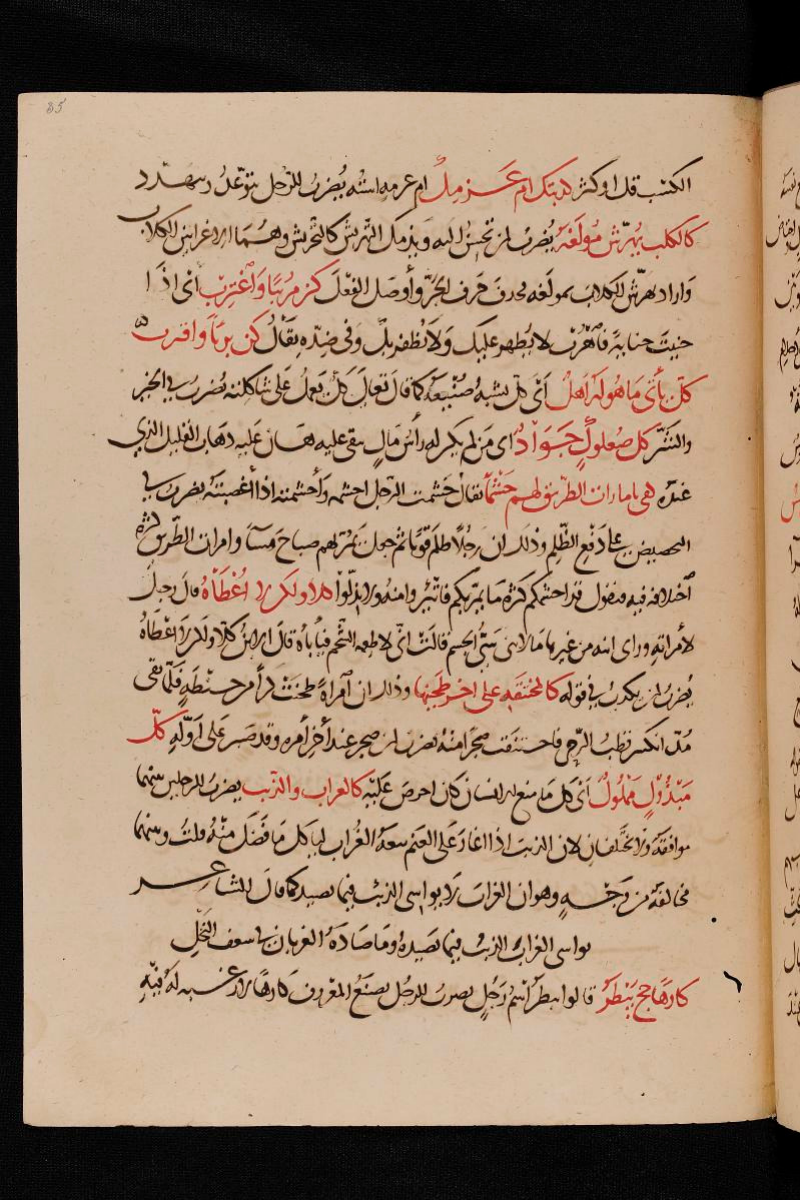 85
الكسب قل او كثر كذبتك ام عزمك ام عرمه استه يضرب للرجل يتوعد ويتهدد
كالكلب يهرّش مؤلفه يضرب لمن تحسن اليه ويذمك التهريش كالتحريش وهما الاغراء بين الكلاب
واراد يهرّش الكلاب بمولفه فحذف حرف الجرّ وأوصل الفعل كن مريبا واغترب أى اذا
جنيت جناية فاهرب لا يظهر عليك ولا يظفر بك وفى ضده يقال كن بريا واقترب
كلّ يأتى ما هو له اهل أى كل يشبه صنيعه كما قال تعالى كل يعمل على شاكلته يضرب فى الخير
والشر كل صعلوك جواد اى من لم يكن له رأس مال يبقى عليه هان عليه ذهاب القليل الذى
عنده كفى باماران الطريق لهم حشما يقال حشمت الرجل احشمه وأحشمته اذا اغضبته يضرب فى
التحضيض على دفع الظلم وذلك ان رجلا ظلم قوما ثم جعل يمرّ بهم صباح مساء وامران الطريق كثرة
اختلافه فيه فيقول قد احشمكم كثرة ما يمر بكم فاتئروا منه ولا تذلّوا كلا ولكن لا اعطاه قال رجل
لامراته وراى ابنه من غيرها مالابنى سئ الجسم قالت انى لاطعمه الشحم فياباه قال ابن كلا ولكن لا اعطاه
يضرب لمن يكذب فى قوله كالمختنقة على اخر طحينها وذلك ان امراة طحنت كرا من حنطة فلمّا بقى
مدّ انكسر قطب الرحى فاختنقت ضجرا منه يضرب لمن ضجر عند أخر أمره وقد صبر على اوّله كلّ
مبذول مملول أى كل ما منع الانسان كان احرص عليه كالغراب والذئب يضرب للرجلين بينهما
موافقة ولا يختلفان لان الذئب اذا اغار على الغنم تبعه الغراب لياكل ما فضل منه قلت وبينهما
مخالفة من وجه وهو ان الغراب لا يواسى الذئب فيما يصيد كما قال الشاعر
يواسى الغراب الذئب فيما يصيده وما صاده الغربان فى سعف النخل
كارها حج بيطر قالوا بيطر اسم رجل يضرب للرجل يصنع المعروف كارها لا رغبة له فيه